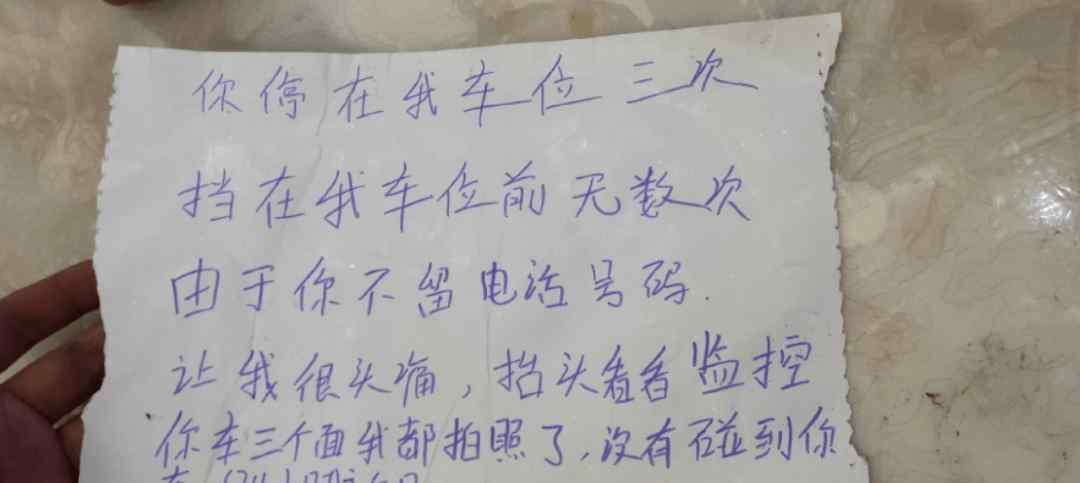 你停在我车位三次
挡在我车位前无数次
由于你不留电话号码.
让我很头痛,抬头看看监控
你车三个面我都拍照了,没有碰到你